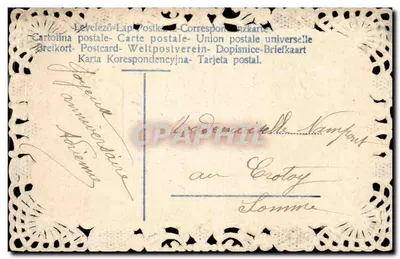 Levelező-Lap-Postkarta-Correspondenzkarte
Cartolina postale- Carte postale- Union postale universelle
Brefkort- Postcard- Weltpostverein- Dopisnice-Briefkaart
Karta Korespondencyjna- Tarjeta postal.
Joyeux
anniversaire
Adrienne
Mademoiselle Nampont
au Crotoy
Somme